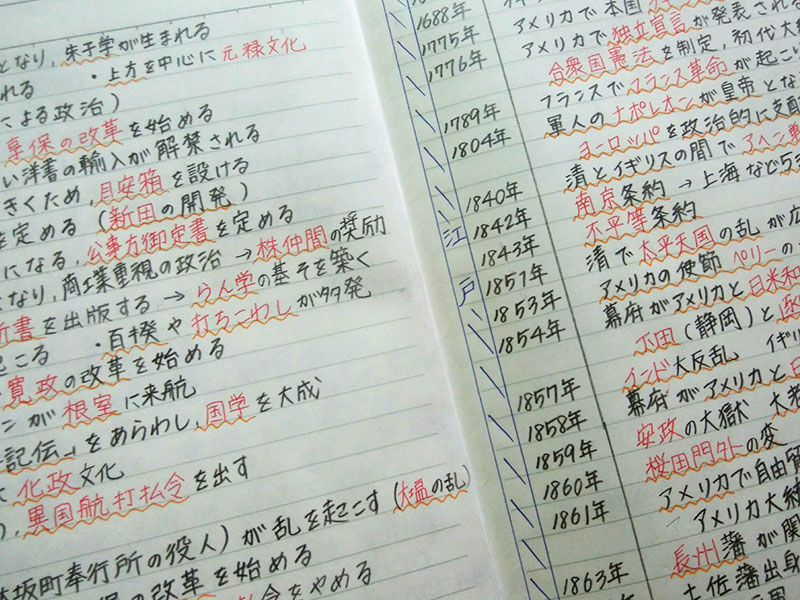 となり、朱子学が生まれる
れる ・上方を中心に元禄文化
による政治）
享保の改革を始める
い洋書の輸入が解禁される
きくため、目安箱を設ける
を定める（新田の開発）
になる、公事方御定書を定める
なり、商工業重視の政治 → 株仲間の奨励
新書を出版する → らん学の基そを築く
起こる ・百揆や打ちこわしが多発
寛政の改革を始める
ンが根室に来航
記伝」をあらわし、国学を大成
化政文化
異国船打払令を出す
大坂町奉行所の役人）が乱を起こす（大塩の乱）
の改革を始める
令をやめる
1688年 アメリカで本国
1775年 アメリカで独立宣言が発表される
1776年 合衆国憲法を制定、初代大
1789年 フランスでフランス革命が起こ
1804年 軍人のナポレオンが皇帝とな
ヨーロッパを政治的に支配
1840年 清とイギリスの間でアヘン戦
1842年 南京条約 → 上海など5
1843年 不平等条約
江戸
1851年 清で太平天国の乱が広
1853年 アメリカの使節ペリーの
1854年 幕府がアメリカと日米和
下田（静岡）と
1857年 インド大反乱 イギリ
1858年 幕府がアメリカと日
1859年 安政の大獄 大老
1860年 桜田門外の変
1861年 アメリカで自由貿
アメリカ大統
1863年 長州藩が関
土佐藩出身